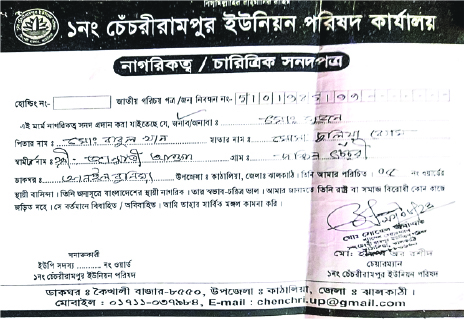 বিসমিল্লাহির রাহমানির রাহিম
১নং চেঁচরীরামপুর ইউনিয়ন পরিষদ কার্যালয়
নাগরিকত্ব / চারিত্রিক সনদপত্র
হোল্ডিং নং- জাতীয় পরিচয় পত্র/জন্ম নিবন্ধন নং-
এই মর্মে নাগরিকত্ব সনদ প্রদান করা যাইতেছে যে, জনাব/জনাবা : মোঃ
পিতার নাম : মোঃ বাবুল খান মাতার নাম : মোসাঃ
স্বামীর নাম : গ্রাম : দক্ষিণ চেঁচরী
ডাকঘর : উপজেলা : কাঠালিয়া, জেলাঃ ঝালকাঠি। তিনি আমার পরিচিত। ০৮ নং ওয়ার্ডের
স্থায়ী বাসিন্দা। তিনি জন্মসূত্রে বাংলাদেশের স্থায়ী নাগরিক। তার স্বভাব-চরিত্র ভাল। আমার জানামতে তিনি রাষ্ট্র বা সমাজ বিরোধী কোন কাজে
জড়িত নহে। সে বর্তমানে বিবাহিত / অবিবাহিত। আমি তাহার সার্বিক মঙ্গল কামনা করি।
সনাক্তকারী
ইউপি সদস্য .......... নং ওয়ার্ড
১নং চেঁচরীরামপুর ইউনিয়ন পরিষদ
মো: রশীদ
চেয়ারম্যান
১নং চেঁচরীরামপুর ইউনিয়ন পরিষদ
ডাকঘর : কৈখালী বাজার-৮৫৫০, উপজেলা : কাঠালিয়া, জেলা : ঝালকাঠী।
মোবাইল : ০১৭১১-০৩৭৯৮৪, E-mail : chenchri.up@gmail.com